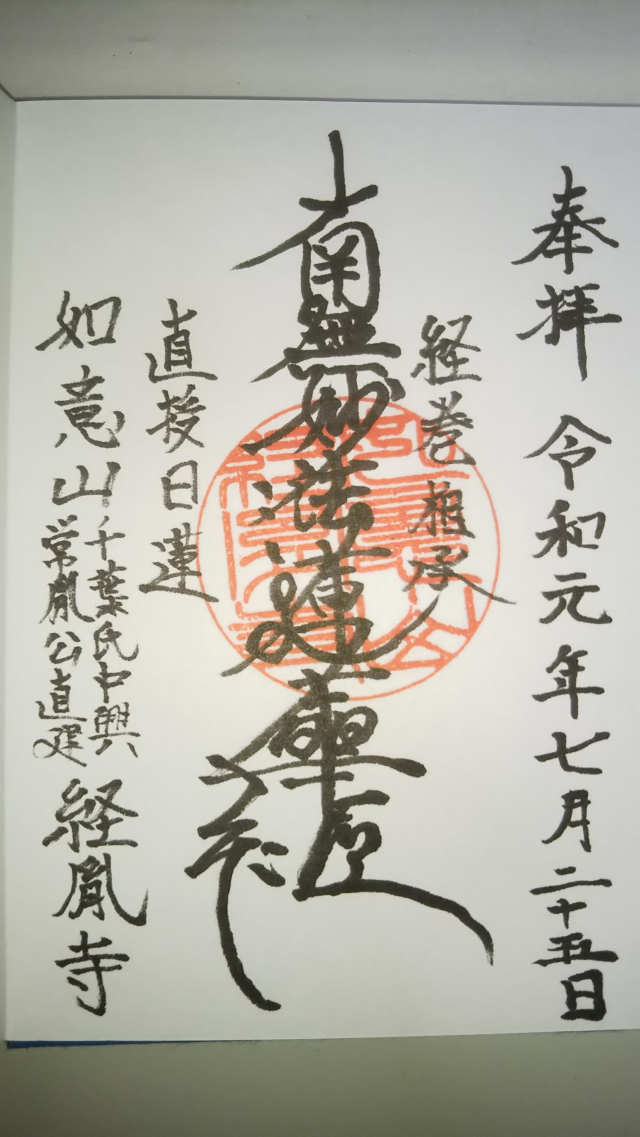 奉拝 令和元年七月二十五日
経巻相承
南無妙法蓮華経
直授日蓮
如意山
千葉氏中興
常胤公直建
経胤寺